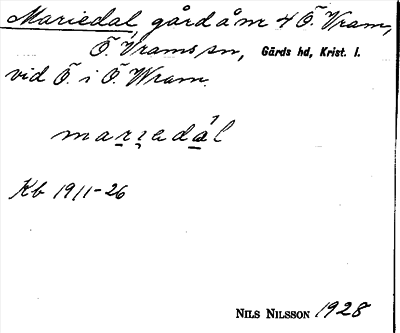 Mariedal, gård å m 4 Ö. Vram,
Ö. Vrams sn, Gärds hd, Krist. l.
vid Ö. i Ö. Wram.
Kb 1911-26
NILS NILSSON 1928